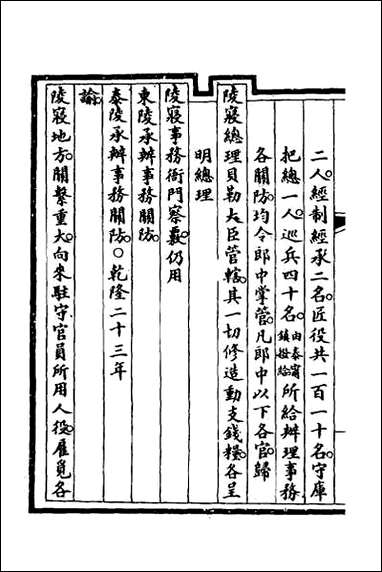 二人。經制經承二名。匠役共一百一十名。守庫
把總一人。巡兵四十名。由泰甯鎮撥給所給辦理事務
各關防。均令郎中掌管。凡郎中以下各官。歸
陵寢總理貝勒大臣管轄。其一切修造動支錢糧。各呈
明總理
陵寢事務衙門察覈。仍用
東陵承辦事務關防。
泰陵承辦事務關防。○乾隆二十三年
諭。
陵寢地方。關繫重大。向來駐守官員所用人役。雇覓各